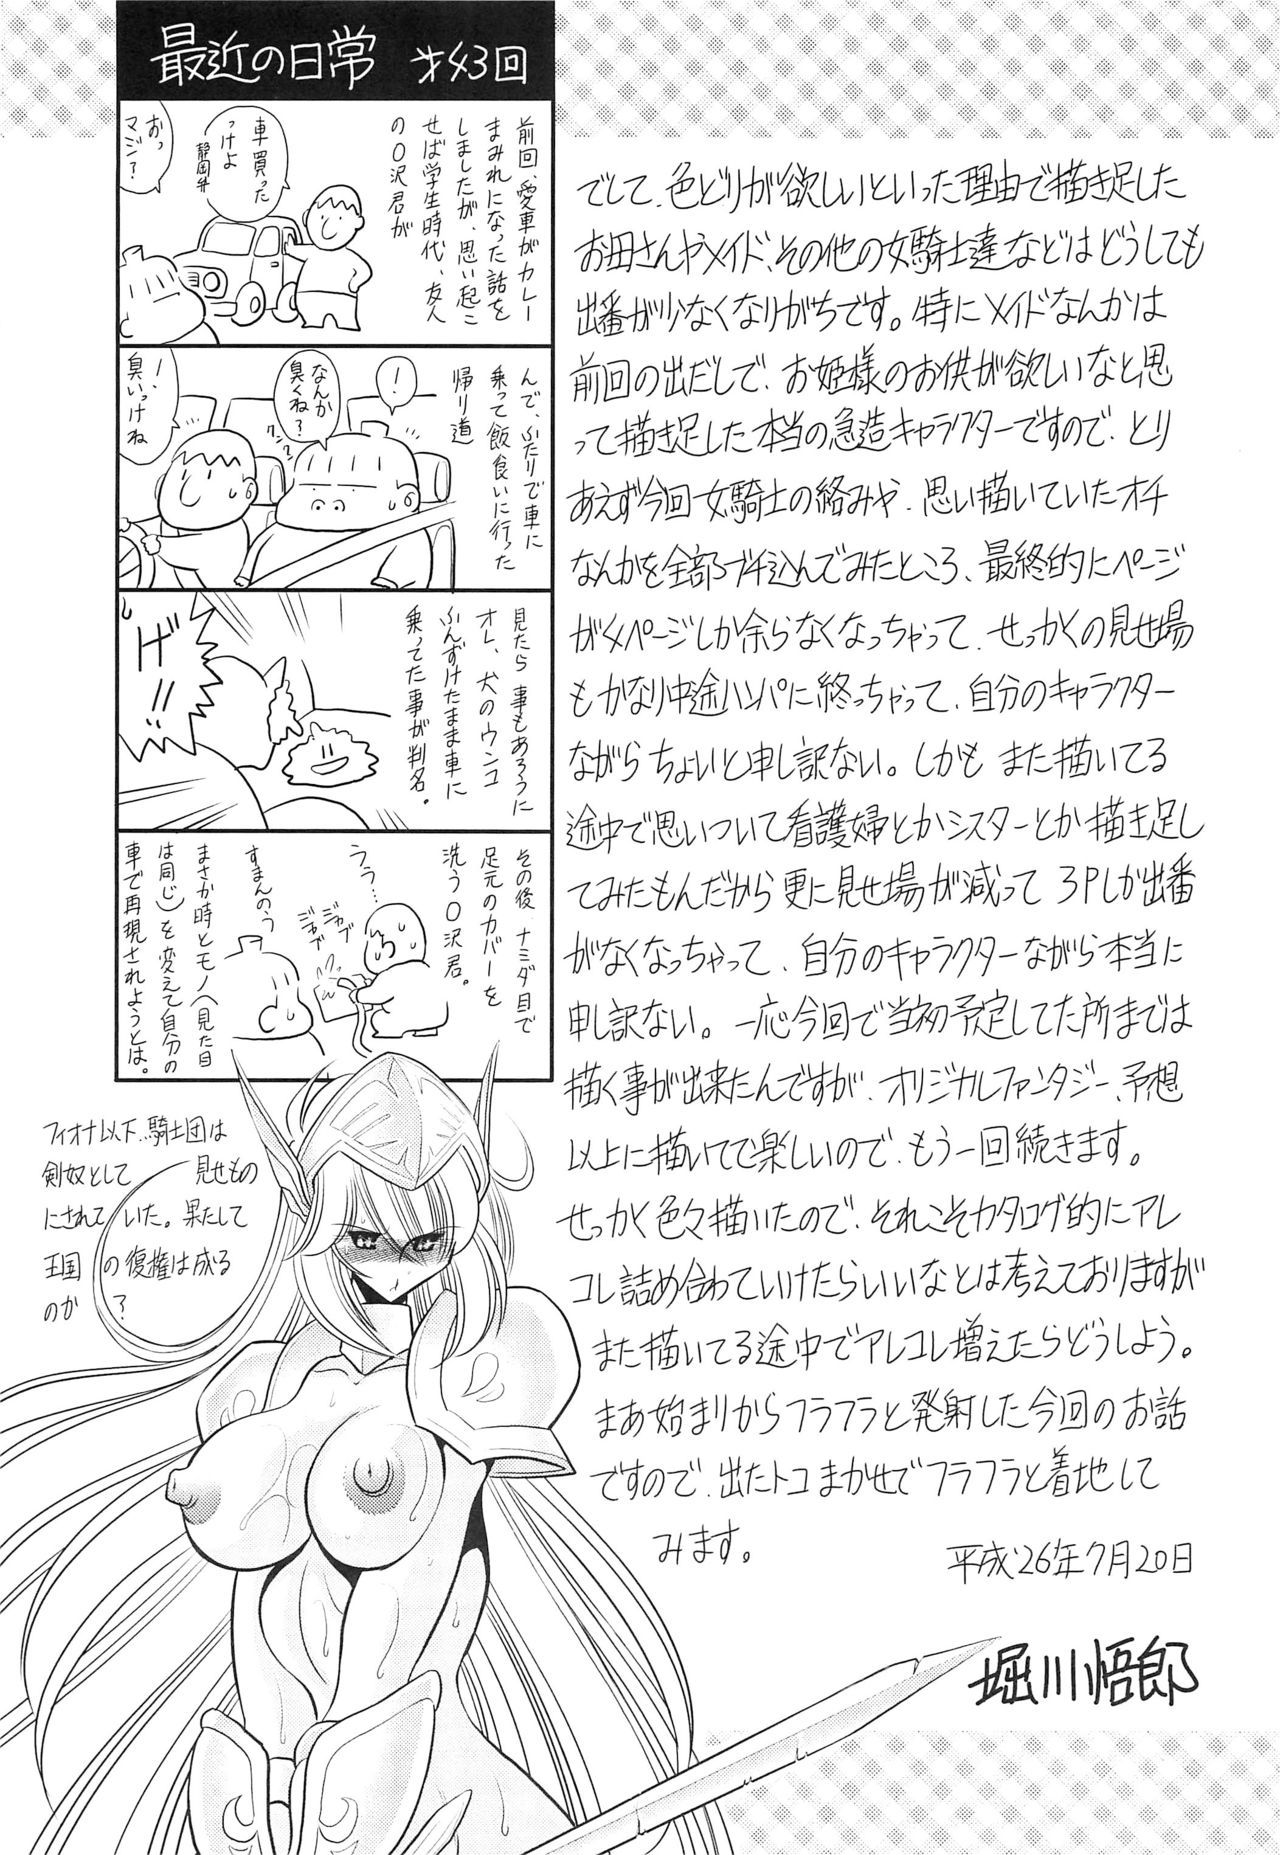 最近の日常 才43回
前回、愛車がカレー
まみれになった話を
しましたが、思い起こ
せば学生時代、友人
の〇沢君が
車買った
っけよ
静岡弁
おっ
マジ?
んで、ふたりで車に
乗って飯食いに行った
帰り道
!
なんか
臭くね?
クン
クン
!、
臭いっけね
見たら事もあろうに
オレ、犬のウンコ
ふんずけたまま車に
乗ってた事が判名。
げ!!
その後、ナミダ目で
足元のカバーを
洗う〇沢君。
うう…
ジャブ
ジャブ
すまんのう
まさか時とモノ(見た目
は同じ)を変えて自分の
車で再現されようとは。
でして、色どりが欲しいといった理由で描き足した
お母さんやメイド、その他の女騎士達などはどうしても
出番が少なくなりがちです。特にメイドなんかは
前回の出だしで、お姫様のお供が欲しいなと思
って描き足した本当の急造キャラクターですので、とり
あえず今回女騎士の絡みや、思い描いていたオチ
なんかを全部ブチ込んでみたところ、最終的にページ
が4ページしか余らなくなっちゃって、せっかくの見せ場
もかなり中途ハンパに終っちゃって、自分のキャラクター
ながらちょいと申し訳ない。しかもまた描いてる
途中で思いついて看護婦とかシスターとか描き足し
てみたもんだから更に見せ場が減って3Pしか出番
がなくなっちゃって、自分のキャラクターながら本当に
申し訳ない。一応今回で当初予定してた所までは
描く事が出来たんですが、オリジナルファンタジー、予想
以上に描いてて楽しいので、もう一回続きます。
せっかく色々描いたので、それこそカタログ的にアレ
コレ詰め合わせていけたらいいなとは考えておりますが
また描いてる途中でアレコレ増えたらどうしよう。
まあ始まりからフラフラと発射した今回のお話
ですので、出たトコまかせでフラフラと着地して
みます。
平成'26年7月20日
堀川悟郎
フィオナ以下、騎士団は
剣奴として見せもの
にされていた。果たして
王国の復権は成る
のか?